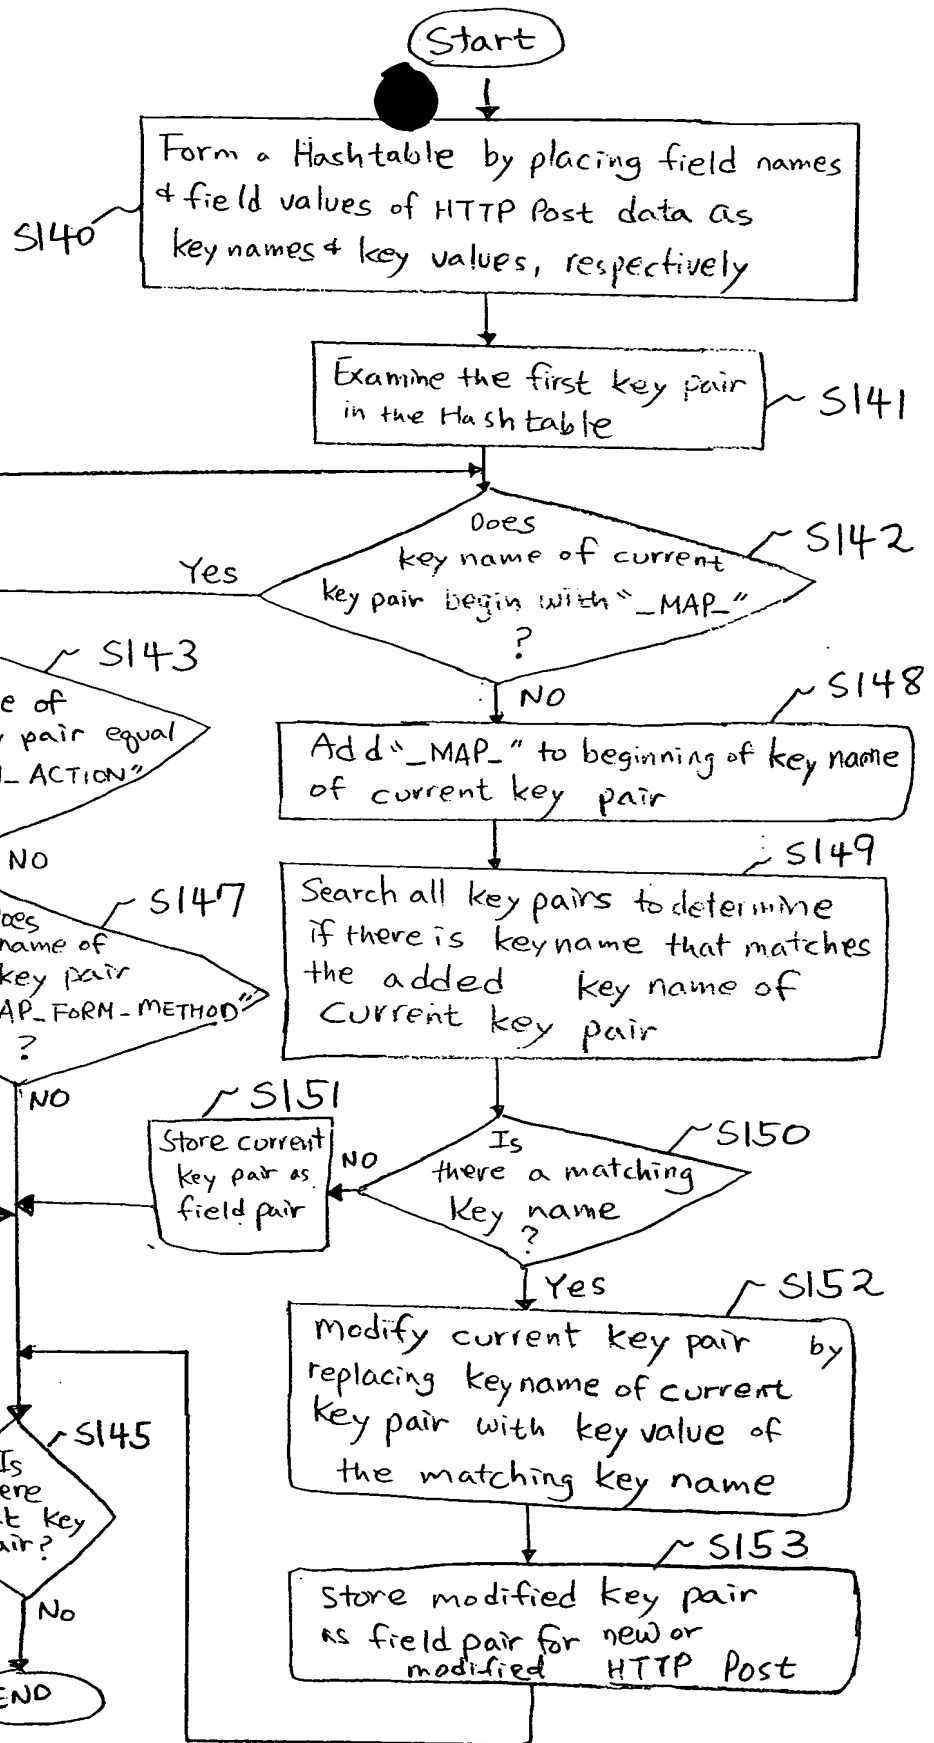 Start
Form a Hashtable by placing field names
& field values of HTTP Post data as
key names & key values, respectively
S140
Examine the first key pair
in the Hashtable
S141
Does
key name of current
key pair begin with "_MAP_"
?
S142
Yes
NO
S143
e of
pair equal
_ACTION"
NO
S148
Add "_MAP_" to beginning of key name
of current key pair
S149
Search all key pairs to determine
if there is keyname that matches
the added key name of
current key pair
S147
oes
name of
key pair
AP_FORM_METHOD"
?
NO
S151
Store current
key pair as
field pair
NO
S150
Is
there a matching
key name
?
Yes
S152
Modify current key pair by
replacing keyname of current
key pair with key value of
the matching key name
S145
Is
ere
t key
air?
No
END
S153
Store modified key pair
as field pair for new or
modified HTTP Post